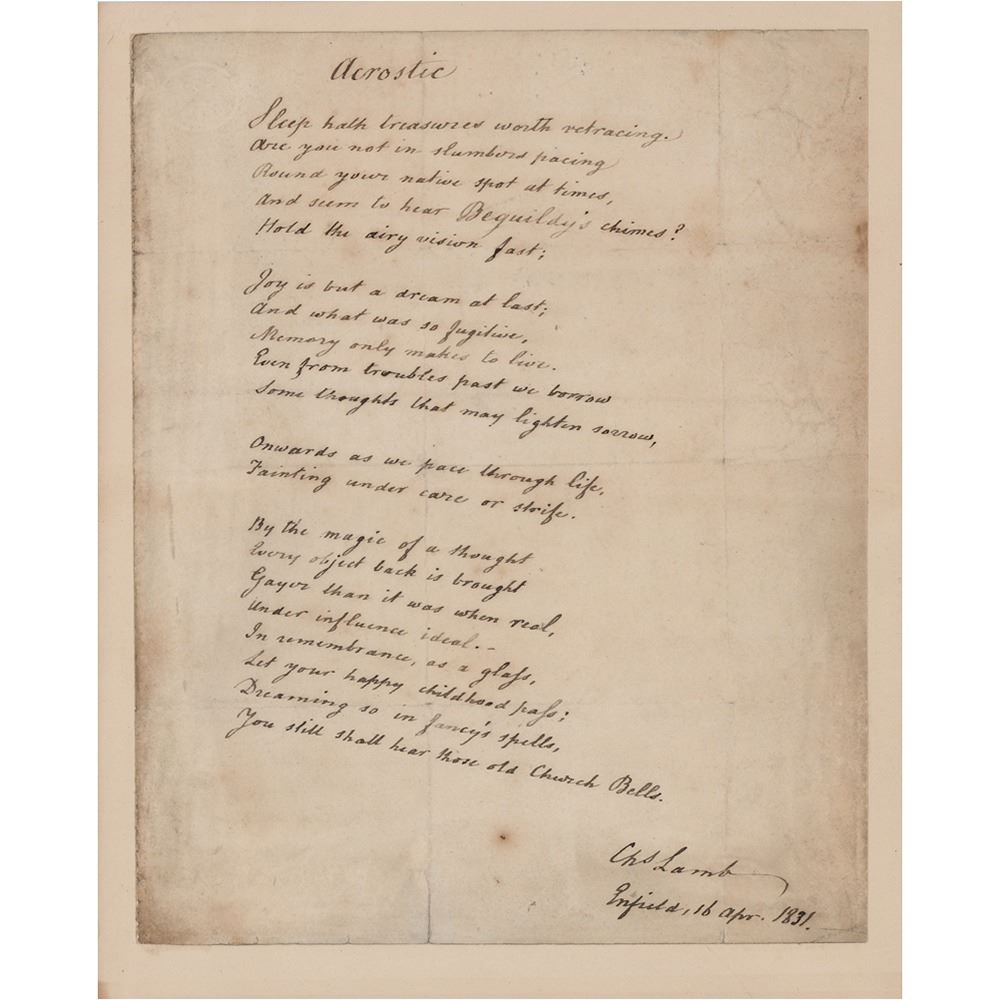 Acrostic
Sleep hath treasures worth retracing.
Are you not in slumbers pacing
Round your native spot at times,
And seem to hear Beguildy's chimes?
Hold the airy vision fast;
Joy is but a dream at last;
And what was so fugitive,
Memory only makes to live.
Even from troubles past we borrow
Some thoughts that may lighten sorrow,
Onwards as we pace through life,
Fainting under care or strife.
By the magic of a thought
Every object back is brought
Gayer than it was when real,
Under influence ideal.-
In remembrance, as a glass,
Let your happy childhood pass;
Dreaming so in fancy's spells,
You still shall hear those old Church Bells.
Chs Lamb
Enfield, 16 Apr. 1831.